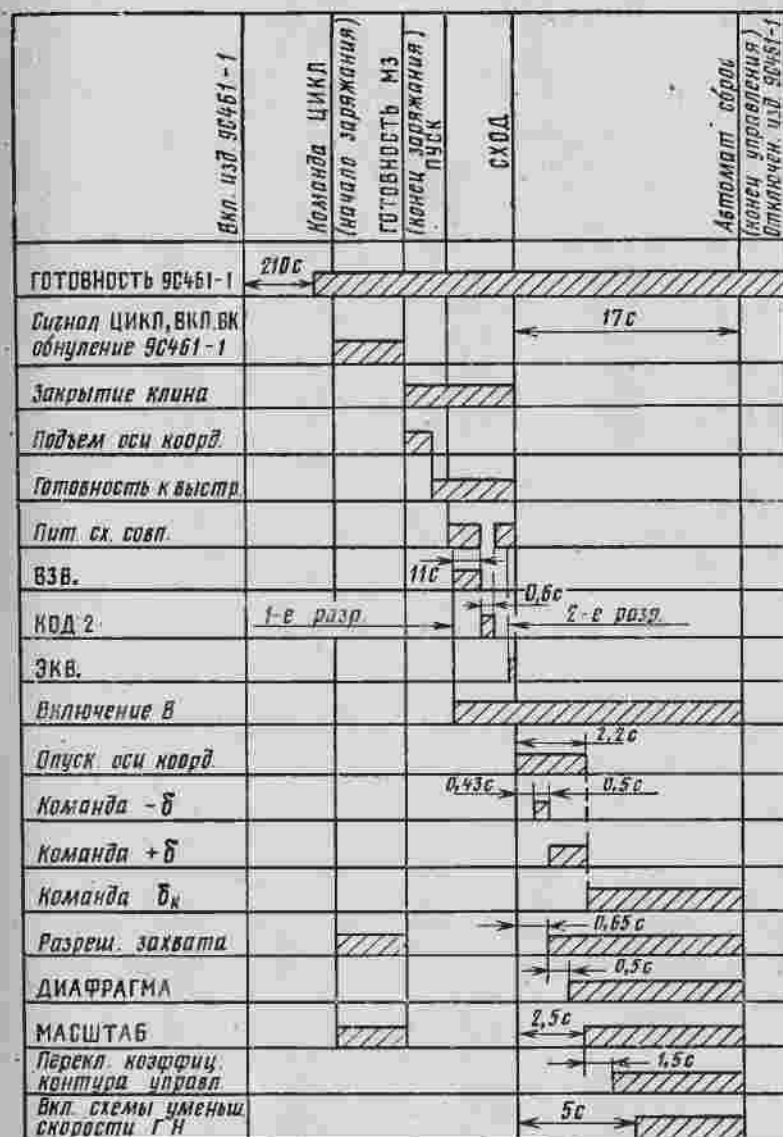 Вкл. изд. 9С461-1
Команда ЦИКЛ
(начало заряжания)
ГОТОВНОСТЬ МЗ
(конец заряжания)
ПУСК
СХОД
Автомат. сброс
(конец управления)
Отключен. изд. 9С461-1
ГОТОВНОСТЬ 9С461-1
210 с
Сигнал ЦИКЛ, ВКЛ. ВК
обнуление 9С461-1
17 с
Закрытие клина
Подъем оси коорд.
Готовность к выстр.
Пит. сх. совп.
ВЗВ.
11 с
0,6 с
КОД 2
1-е разр.
2-е разр.
ЭКВ.
Включение В
Опуск. оси коорд.
2,2 с
Команда -δ
0,43 с
0,5 с
Команда +δ
Команда δк
Разреш. захвата
0,65 с
0,5 с
ДИАФРАГМА
МАСШТАБ
2,5 с
Перекл. коэффиц.
контура управл.
1,5 с
Вкл. схемы уменьш.
скорости ГН
5 с